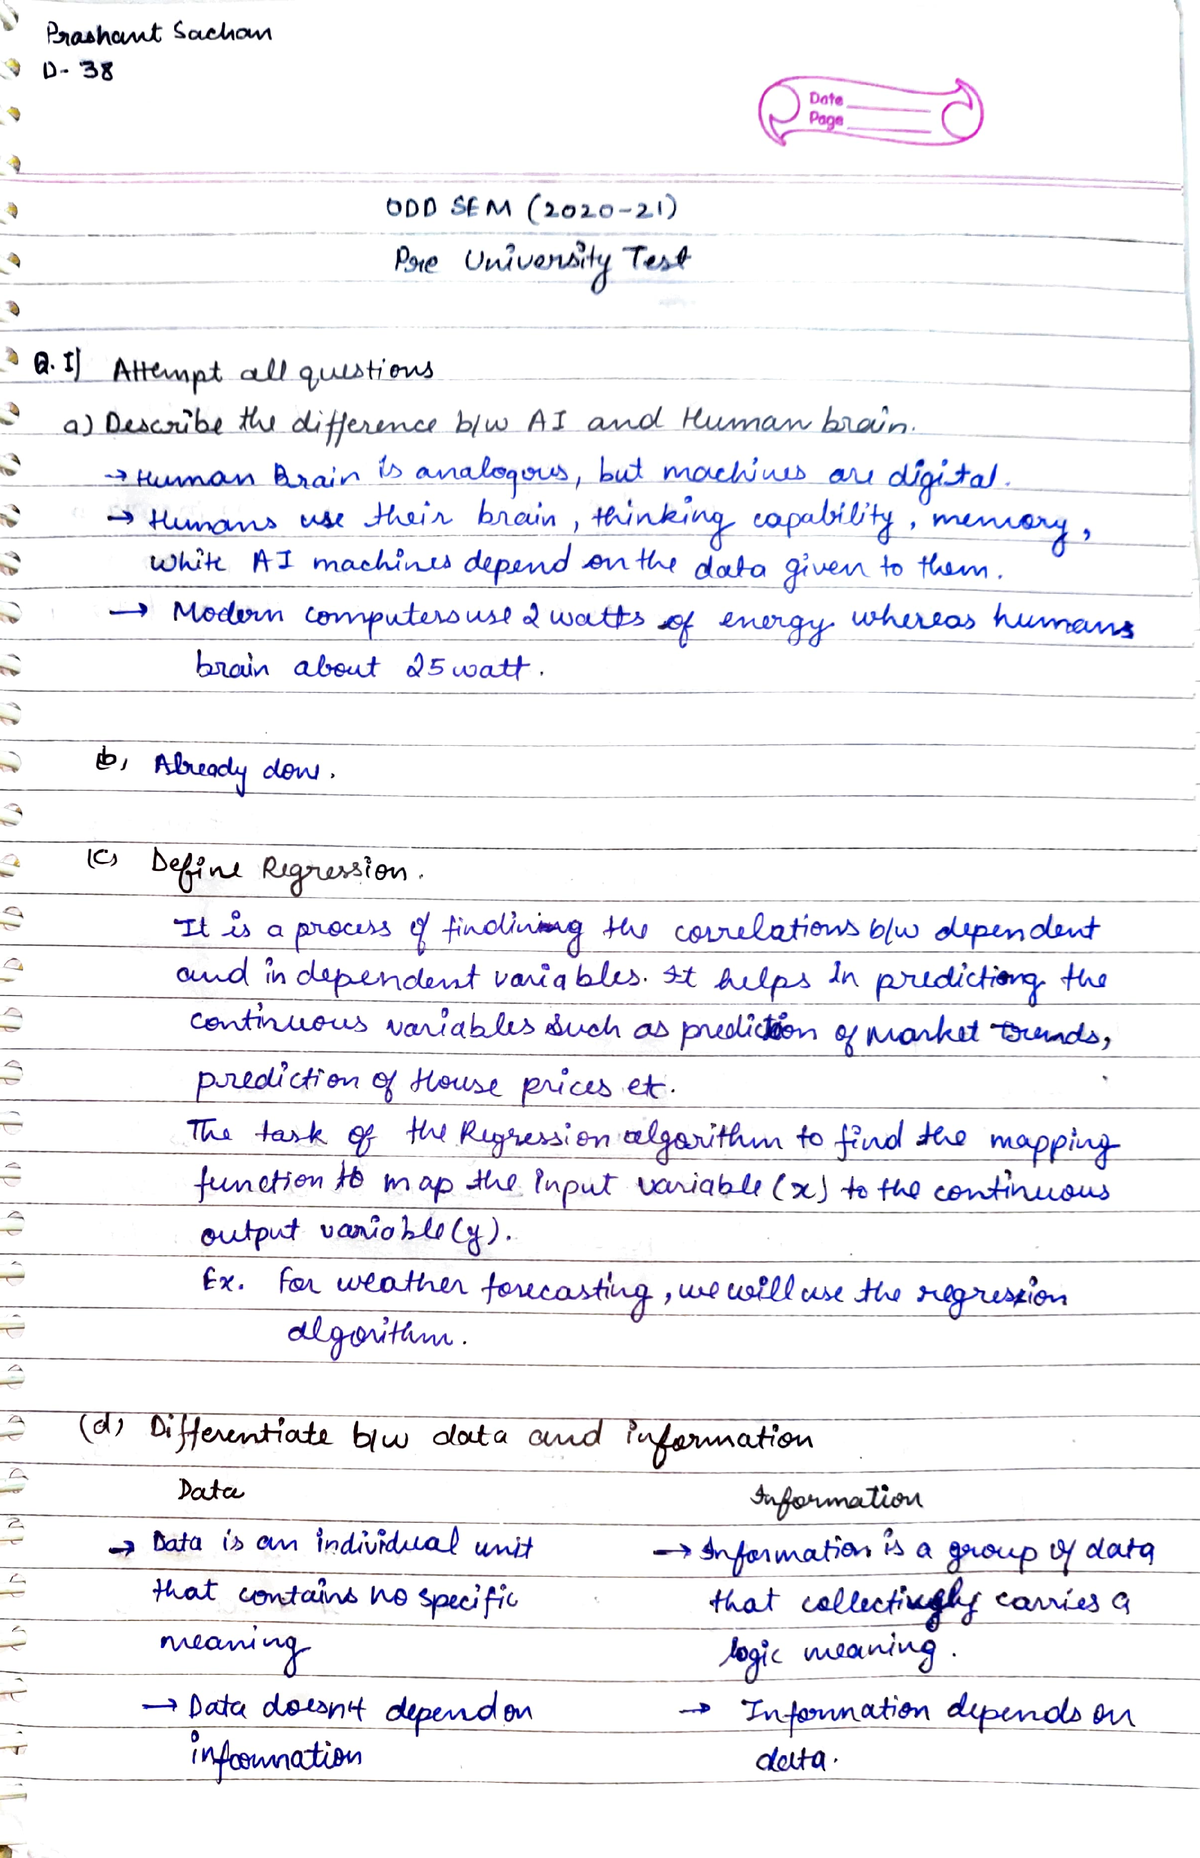 Prashant Sachan
D- 38
Date
Page
ODD SEM (2020-21)
Pre University Test
Q.1] Attempt all questions
a) Describe the difference b/w AI and Human brain.
→ Human Brain is analogous, but machines are digital.
→ Humans use their brain, thinking capability, memory,
white AI machines depend on the data given to them.
→ Modern computers use 2 watts of energy whereas humans
brain about 25 watt.
b, Already done.
(c) Define Regression.
It is a process of findining the correlations b/w dependent
and independent variables. It helps in predictiong the
continuous variables such as prediction of Market trends,
prediction of House prices etc.
The task of the Regression algorithm to find the mapping
function to map the input variable (x) to the continuous
output variable (y).
Ex. For weather forecasting, we will use the regression
algorithm.
(d) Differentiate b/w data and information
Data Information
→ Data is an individual unit → Information is a group of data
that contains no specific that collectively carries a
meaning logic meaning.
→ Data doesn't depend on → Information depends on
information data.